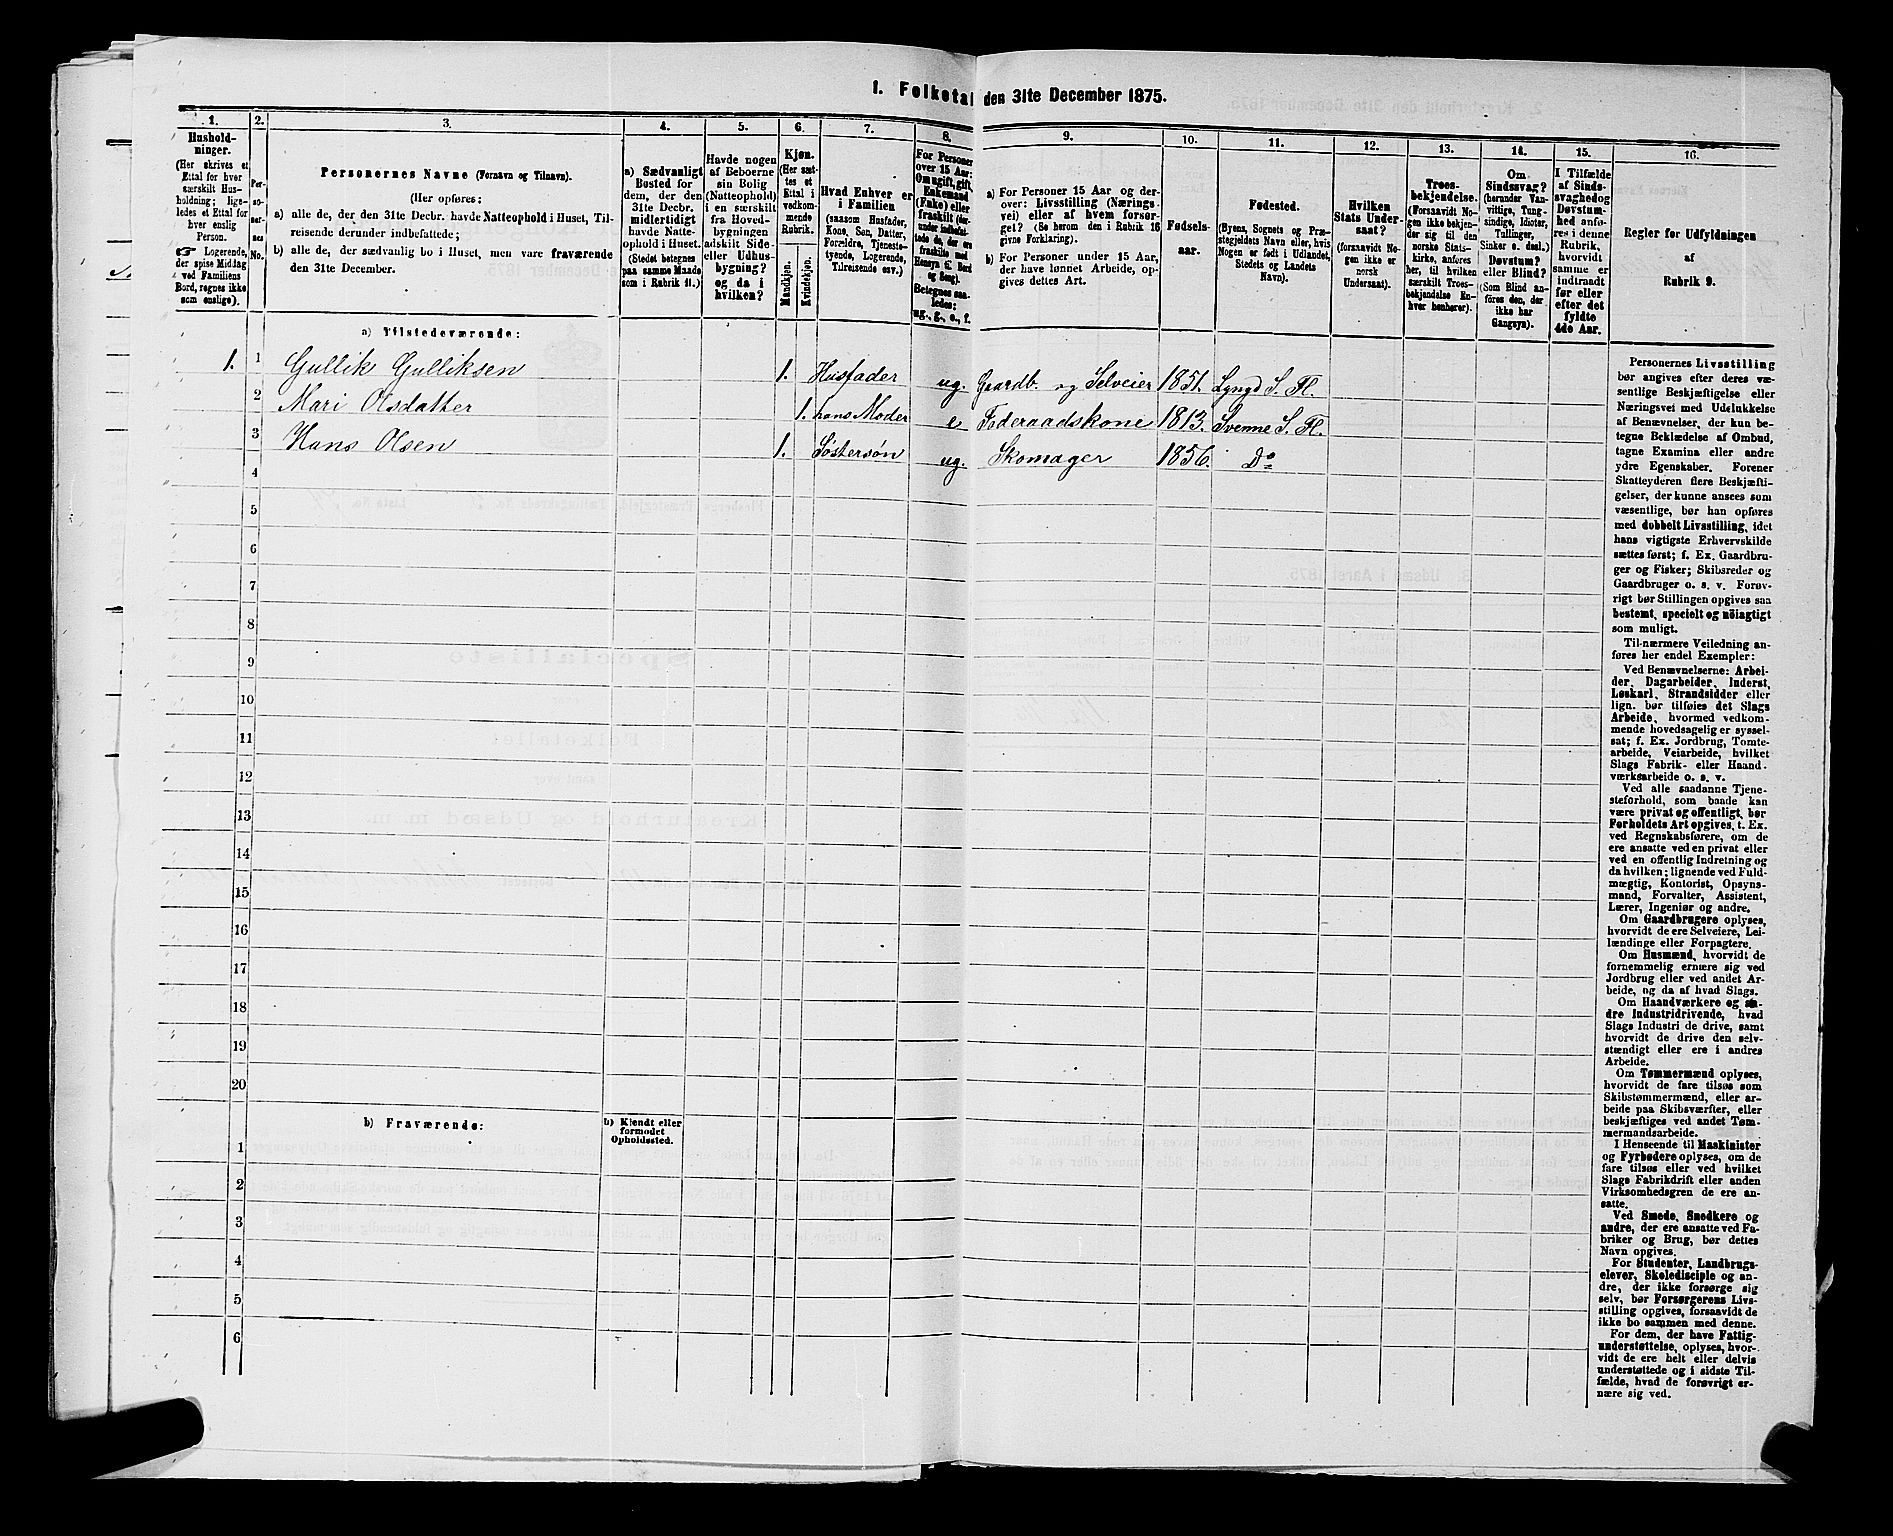 1. Folketal den 31te December 1875.
1. 2. 3. 4. 5. 6. 7. 8. 9. 10. 11. 12. 13. 14. 15. 16.
Hushold-
ninger.
(Her skrives et
Ettal for hver
særskilt Hus-
holdning; lige-
ledes et Ettal for
hver enslig
Person.
☞ Logerende,
der spise Middag
ved Familiens
Bord, regnes ikke
som enslige).
Per-
so-
ner-
nes
No.
Personernes Navne (Fornavn og Tilnavn).
(Her opføres:
a) alle de, der den 31te Decbr. havde Natteophold i Huset, Til-
reisende derunder indbefattede;
b) alle de, der sædvanlig bo i Huset, men vare fraværende
den 31te December.
a) Sædvanligt
Bosted for
dem, der den
31te Decbr.
midlertidigt
havde Natte-
ophold i Huset.
(Stedet betegnes
paa samme Maade
som i Rubrik 11.)
Havde nogen
af Beboerne
sin Bolig
(Natteophold)
i en særskilt
fra Hoved-
bygningen
adskilt Side-
eller Udhus-
bygning?
og da i
hvilken?
Kjøn.
(Her sæt-
tes et
Ettal i
vedkom-
mende
Rubrik.
Mandkjøn.
Kvindekjøn.
Hvad Enhver er
i Familien
(saasom Husfader,
Kone, Søn, Datter,
Forældre, Tjeneste-
tyende, Logerende,
Tilreisende osv.)
For Personer
over 15 Aar:
Om ugift, gift,
Enkemand
(Enke) eller
fraskilt (der-
under indbefat-
tede de, der ere
fraskilte med
Hensyn til Bord
og Seng).
Betegnes saa-
ledes:
ug., g., e., f.
a) For Personer 15 Aar og der-
over: Livsstilling (Nærings-
vei) eller af hvem forsør-
get? (Se herom den i Rubrik 16
givne Forklaring).
b) For Personer under 15 Aar,
der have lønnet Arbeide, op-
gives dettes Art.
Fødsels-
aar.
Fødested.
(Byens, Sognets og Præ-
stegjeldets Navn eller, hvis
Nogen er født i Udlandet,
Stedets og Landets
Navn).
Hvilken
Stats Under-
saat?
(forsaavidt No-
gen ikke er
norsk
Undersaat).
Troes-
bekjendelse.
(Forsaavidt No-
gen ikke bekjen-
der sig til den
norske Stats-
kirke, anføres
her, til hvilken
særskilt Troes-
bekjendelse En-
hver henhører).
Om
Sindssvag?
(herunder Van-
vittige, Tung-
sindige, Idioter,
Tullinger,
Sinker o. desl.)
Døvstum?
eller Blind?
(Som Blind an-
føres den, der
ikke har
Gangsyn).
I Tilfælde
af Sinds-
svaghed og
Døvstum-
hed anfø-
res i denne
Rubrik,
hvorvidt
samme er
indtraadt
før eller
efter det
fyldte
4de Aar.
Regler for Udfyldningen
af
Rubrik 9.
a) Tilstedeværende:
1. 1 Gullik Gulliksen 1. Husfader ug. Gaardb. og Selveier 1851. Lyngd. S. Fl.
2 Mari Olsdatter 1. hans Moder e Føderaadskone 1813. Svenne S. Fl.
3 Hans Olsen 1. Søstersøn ug. Skomager 1856. Do
4
5
6
7
8
9
10
11
12
13
14
15
16
17
18
19
20
b) Fraværende:
b) Kjendt eller
formodet
Opholdssted.
1
2
3
4
5
6
Personernes Livsstilling
bør angives efter deres væ-
sentlige Beskjæftigelse eller
Næringsvei med Udelukkelse
af Benævnelser, der kun be-
tegne Beklædelse af Ombud,
tagne Examina eller andre
ydre Egenskaber. Forener
Skatteyderen flere Beskjæfti-
gelser, der kunne ansees som
væsentlige, bør han opføres
med dobbelt Livsstilling, idet
hans vigtigste Erhvervskilde
sættes først; f. Ex. Gaardbru-
ger og Fisker; Skibsreder og
Gaardbruger o. s. v. Forøv-
rigt bør Stillingen opgives saa
bestemt, specielt og nøiagtigt
som muligt.
Til nærmere Veiledning an-
føres her endel Exempler:
Ved Benævnelserne: Arbei-
der, Dagarbeider, Inderst,
Løskarl, Strandsidder eller
lign. bør tilføies det Slags
Arbeide, hvormed vedkom-
mende hovedsagelig er syssel-
sat; f. Ex. Jordbrug, Tomte-
arbeide, Veiarbeide, hvilket
Slags Fabrik- eller Haand-
værksarbeide o. s. v.
Ved alle saadanne Tjene-
steforhold, som baade kan
være privat og offentligt, bør
Forholdets Art opgives, t. Ex.
ved Regnskabsførere, om de
ere ansatte ved en privat eller
ved en offentlig Indretning og
da hvilken; lignende ved Fuld-
mægtig, Kontorist, Opsyns-
mand, Forvalter, Assistent,
Lærer, Ingeniør og andre.
Om Gaardbrugere oplyses,
hvorvidt de ere Selveiere, Lei-
lændinge eller Forpagtere.
Om Husmænd, hvorvidt de
fornemmelig ernære sig ved
Jordbrug eller ved andet Ar-
beide, og da af hvad Slags.
Om Haandværkere og an-
dre Industridrivende, hvad
Slags Industri de drive, samt
hvorvidt de drive den selv-
stændigt eller ere i andres
Arbeide.
Om Tømmermænd oplyses,
hvorvidt de fare tilsøs som
Skibstømmermænd, eller ar-
beide paa Skibsværfter, eller
beskjæftiges ved andet Tøm-
mermandsarbeide.
I Henseende til Maskinister
og Fyrbødere oplyses, om de
fare tilsøs eller ved hvilket
Slags Fabrikdrift eller anden
Virksomhedsgren de ere an-
satte.
Ved Smede, Snedkere og
andre, der ere ansatte ved Fa-
briker og Brug, bør dettes
Navn opgives.
For Studenter, Landbrugs-
elever, Skoledisciple og an-
dre, der ikke forsørge sig
selv, bør Forsørgerens Livs-
stilling opgives, forsaavidt de
ikke bo sammen med denne.
For dem, der have Fattig-
understøttelse, oplyses, hvor-
vidt de ere helt eller delvis
understøttede og i sidste Til-
fælde, hvad de forøvrigt er-
nære sig ved.